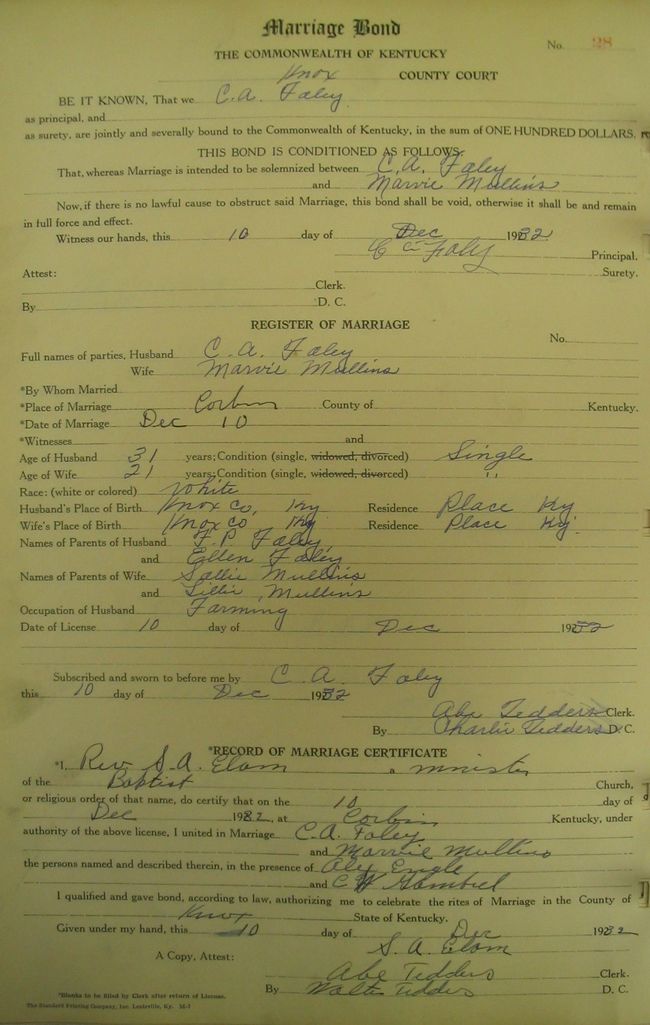 Marriage Bond
No. 28
THE COMMONWEALTH OF KENTUCKY
Knox COUNTY COURT
BE IT KNOWN, That we C. A. Foley
as principal, and
as surety, are jointly and severally bound to the Commonwealth of Kentucky, in the sum of ONE HUNDRED DOLLARS.
THIS BOND IS CONDITIONED AS FOLLOWS
That, whereas Marriage is intended to be solemnized between C. A. Foley
and Marvie Mullins
Now, if there is no lawful cause to obstruct said Marriage, this bond shall be void, otherwise it shall be and remain
in full force and effect.
Witness our hands, this 10 day of Dec 1932
C A Foley Principal.
Attest: Surety.
Clerk.
By D. C.
REGISTER OF MARRIAGE
No.
Full names of parties, Husband C. A. Foley
Wife Marvie Mullins
*By Whom Married
*Place of Marriage Corbin County of Kentucky.
*Date of Marriage Dec 10
*Witnesses and
Age of Husband 31 years; Condition (single, widowed, divorced) Single
Age of Wife 21 years; Condition (single, widowed, divorced) "
Race: (white or colored) White
Husband's Place of Birth Knox Co, Ky Residence Place Ky
Wife's Place of Birth Knox Co Ky Residence Place Ky.
Names of Parents of Husband F. P. Foley
and Ellen Foley
Names of Parents of Wife Sallie Mullins
and Lillie Mullins
Occupation of Husband Farming
Date of License 10 day of Dec 1932
Subscribed and sworn to before me by C. A. Foley
this 10 day of Dec 1932
Abe Tedders Clerk.
By Charlie Tedders D. C.
*RECORD OF MARRIAGE CERTIFICATE
*I, Rev S. A. Elam a mnister
of the Baptist Church,
or religious order of that name, do certify that on the 10 day of
Dec 1932, at Corbin Kentucky, under
authority of the above license, I united in Marriage C. A. Foley
and Marvie Mullins
the persons named and described therein, in the presence of Aley Engle
and C W Gambrel
I qualified and gave bond, according to law, authorizing me to celebrate the rites of Marriage in the County of
Knox State of Kentucky.
Given under my hand, this 10 day of Dec 1932
S. A. Elam
A Copy, Attest: Abe Tedders Clerk.
By Walter Tedders D. C.
*Blanks to be filled by Clerk after return of License.
The Standard Printing Company, Inc. Louisville, Ky. M-7